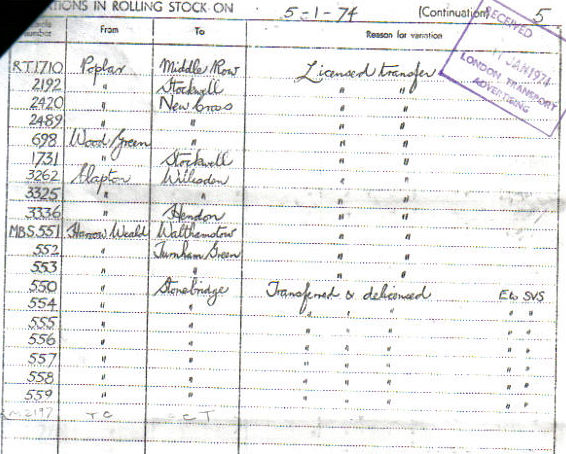 TIONS IN ROLLING STOCK ON 5-1-74 (Continuation) 5
number From To Reason for variation
RECEIVED
JAN 1974
LONDON TRANSPORT
ADVERTISING
RT1710 Poplar Middle Row Licensed transfer
2192 " Stockwell " "
2420 " New Cross " "
2489 " " " "
698 Wood Green " " "
1731 " Stockwell " "
3262 Clapton Willesden " "
3325 " " " "
3336 " Hendon " "
MBS.551 Harrow Weald Walthamstow " "
552 " Turnham Green " "
553 " " " "
550 " Stonebridge Transferred & delicensed Ex SVS
554 " " " " " " "
555 " " " " " " "
556 " " " " " " "
557 " " " " " " "
558 " " " " " " "
559 " " " " " " "
2197 T C C T